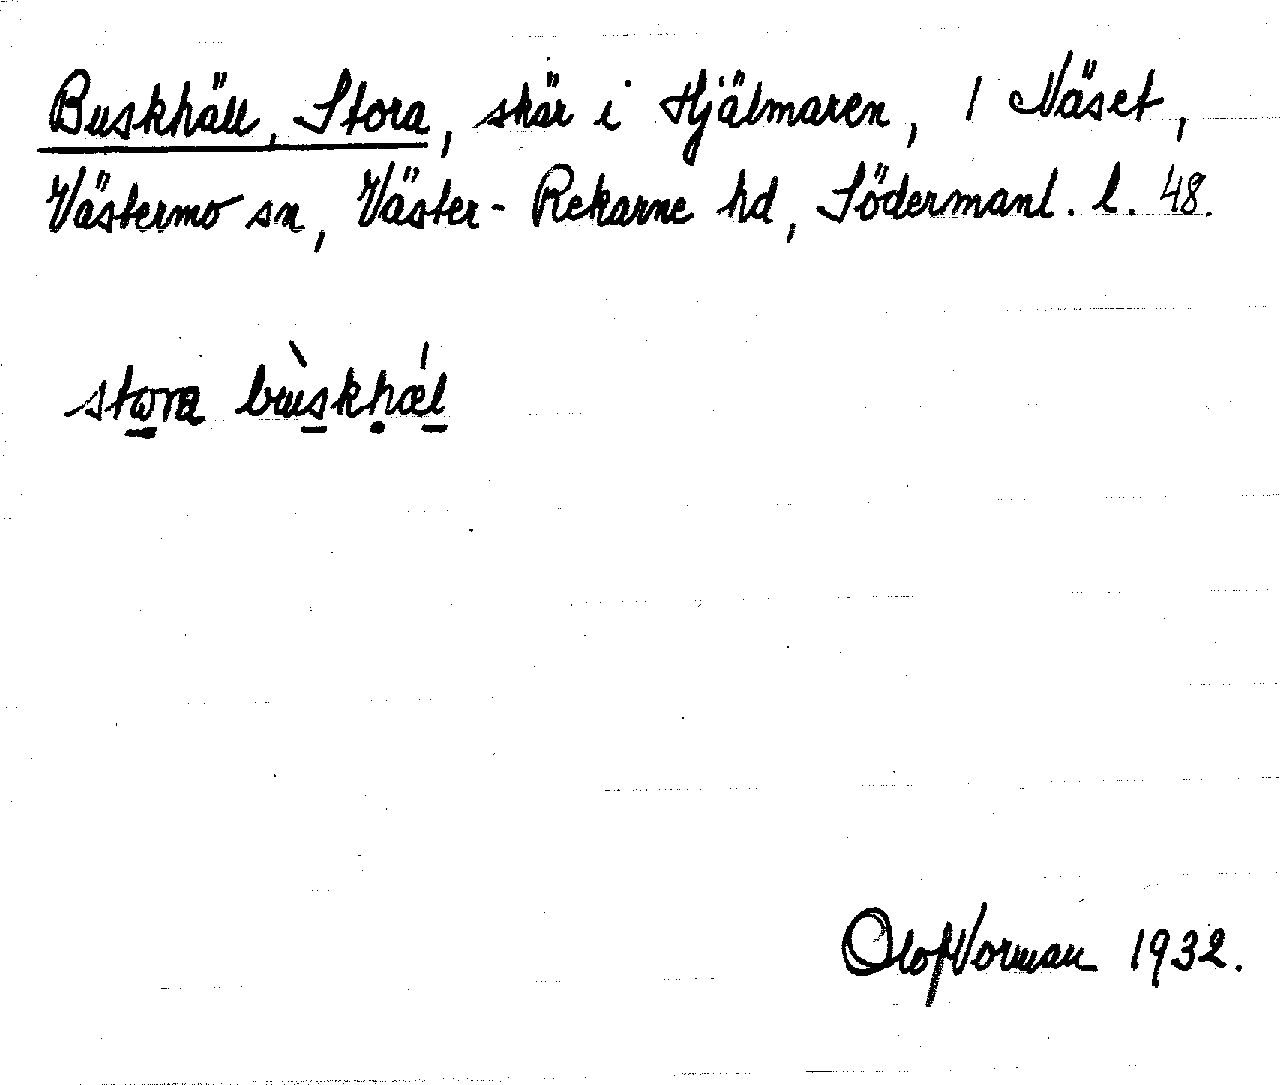 Buskhäll, Stora, skär i Hjälmaren, 1 Näset,
Västermo sn, Väster-Rekarne hd, Södermanl. l. 48.
stora bùskhæ̀l
Olof Norman 1932.